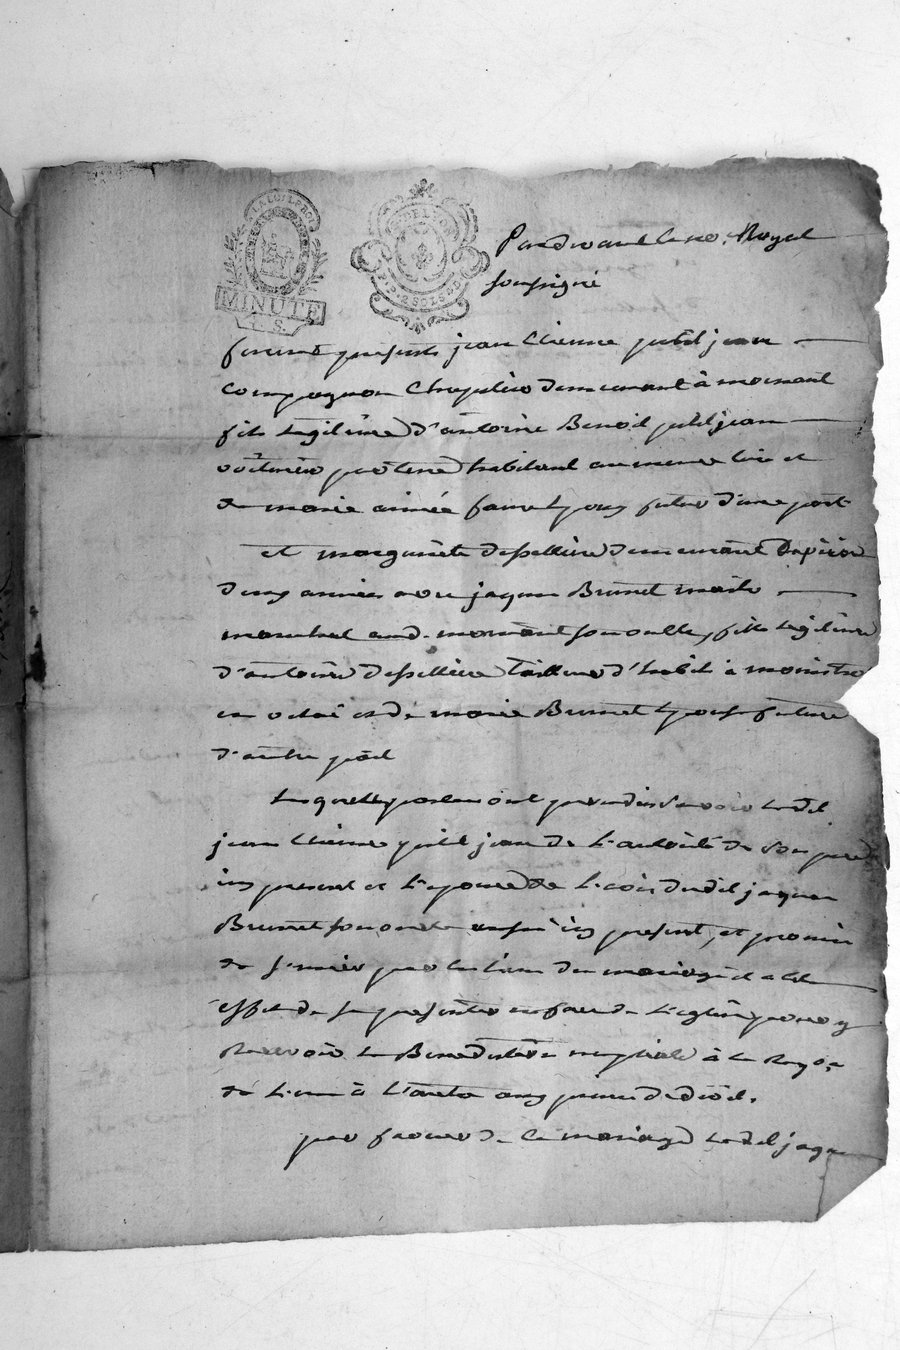 LA LOI LE ROI
MINUTE
4. S.
G. DE LYON
P. P. 2 SOLS 8 D.
Pardevant le no.re Royal
soussigné
furent presents jean Etienne petit jean
compagnon Chapelier demeurant à mornant
fils legitime d'antoine Benoit petit jean
voiturier par terre habitant au meme lieu et
de marie aimée faure Epoux futur d'une part
et marguerite despelliere demeurant depuis
deux années avec jaques Brunet maitre
marechal aud. mornant son oncle, fille legitime
d'antoine despelliere tailleur d'habit à
et de marie Brunet Epouse future
d'autre part
Lesquelles parties ont procedé savoir ledit
jean Etienne petit jean de L'autorité de son pere
icy present et L'epouse de L'avis dudit jaques
Brunet son oncle aussi icy present, et promis
de s'unir par les liens du mariage et a cet
effet de se presenter en face de L'eglise pour y
Recevoir la Benediction nuptiale à la Req.on
de L'un à L'autre aux peines de droit.
par faveur de ce mariage ledit jaques